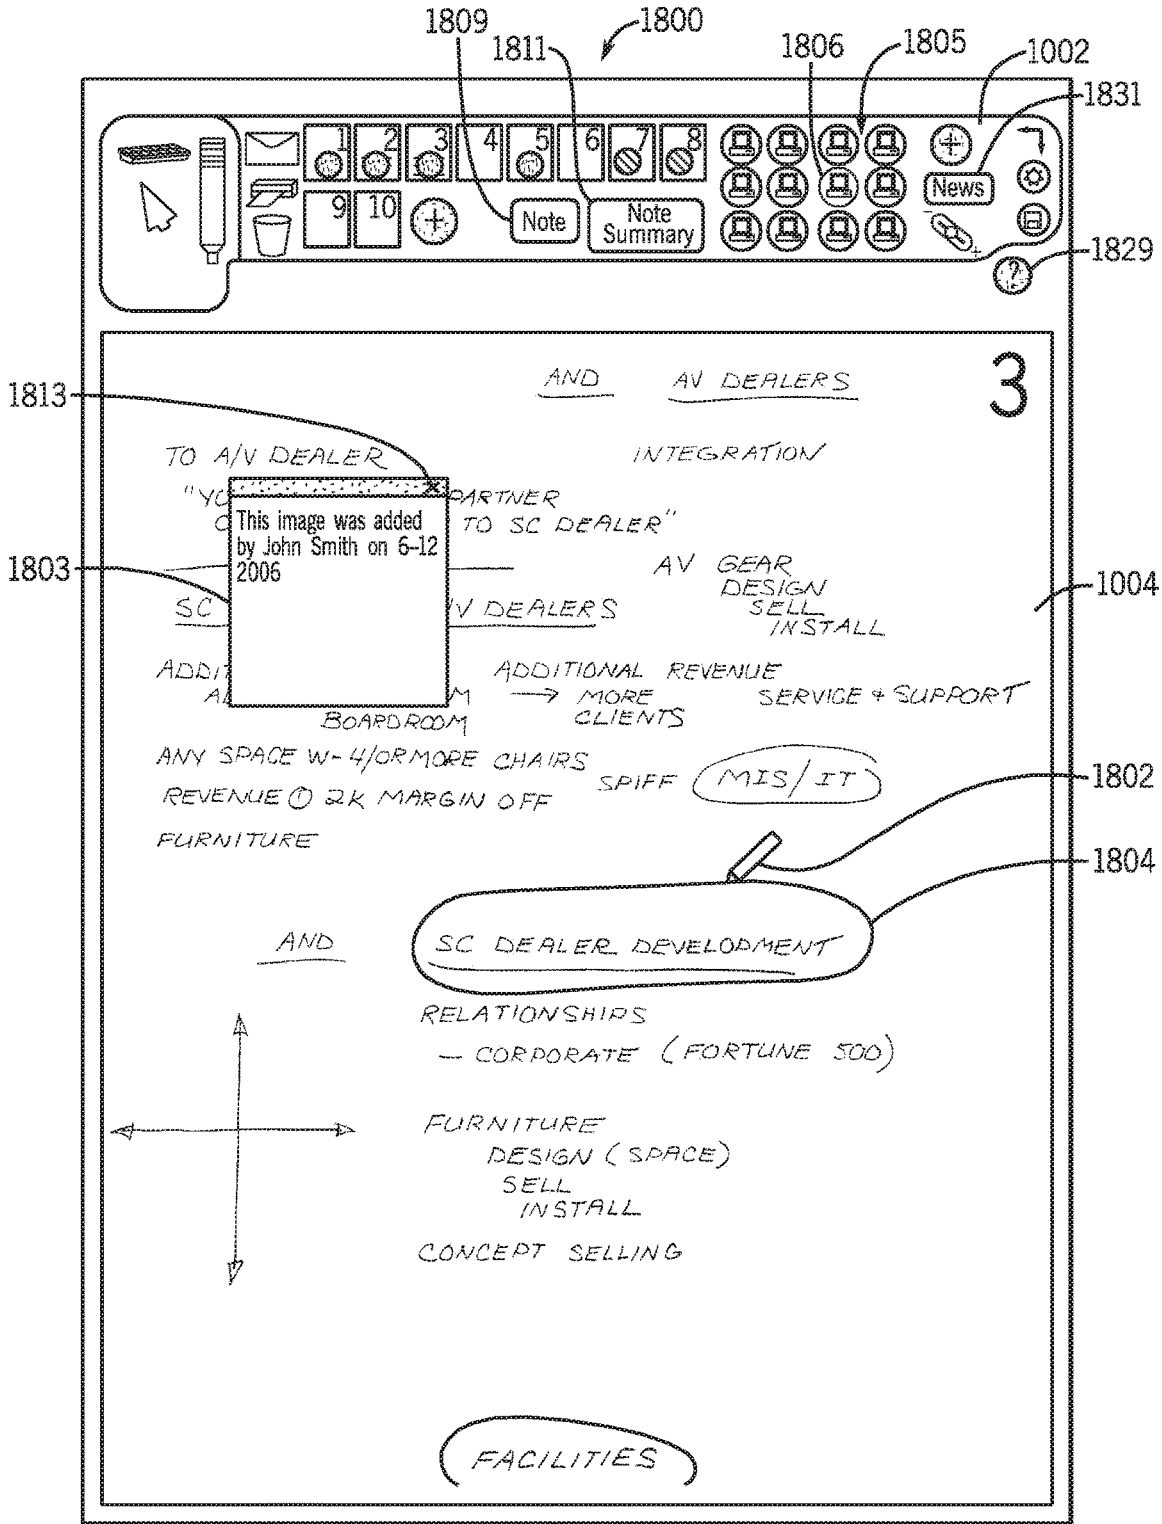 1809
1800
1811
1806
1805
1002
1831
1 2 3 4 5 6 7 8
9 10
Note
Note
Summary
News
?
1829
3
AND AV DEALERS
1813
TO A/V DEALER INTEGRATION
"YO PARTNER
TO SC DEALER"
This image was added
by John Smith on 6-12
2006
1803
AV GEAR
DESIGN
SELL
INSTALL
1004
SC V DEALERS
ADDIT ADDITIONAL REVENUE
A M → MORE SERVICE & SUPPORT
BOARDROOM CLIENTS
ANY SPACE W- 4/OR MORE CHAIRS
SPIFF MIS/IT
1802
REVENUE @ 2K MARGIN OFF
FURNITURE
1804
AND SC DEALER DEVELOPMENT
RELATIONSHIPS
— CORPORATE (FORTUNE 500)
FURNITURE
DESIGN (SPACE)
SELL
INSTALL
CONCEPT SELLING
FACILITIES